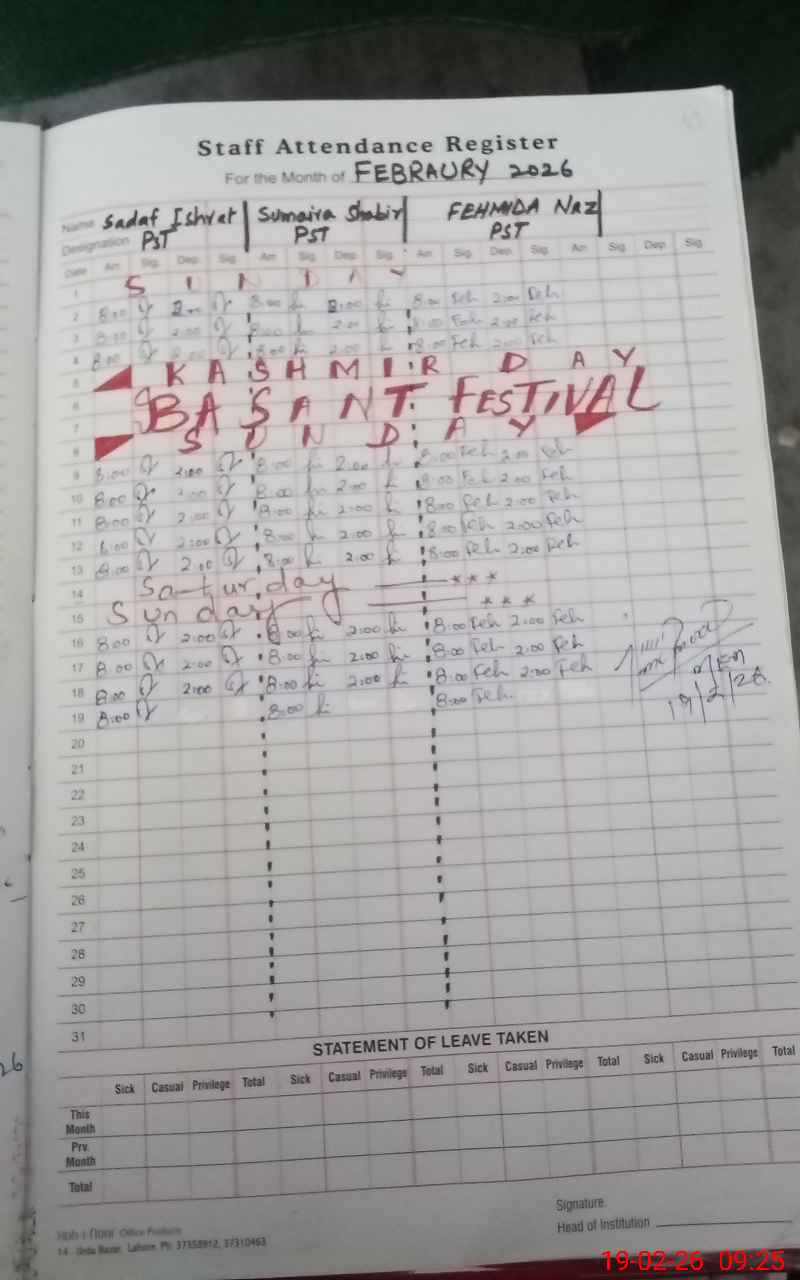 Staff Attendance Register
For the Month of FEBRAURY 2026
Name Sadaf Ishrat Sumaira Shabir FEHMIDA Naz
Designation PST PST PST
Date Arr. Sig. Dep. Sig. Arr. Sig. Dep. Sig. Arr. Sig. Dep. Sig. Arr. Sig. Dep. Sig.
1 SUNDAY
2 8:00 2:00 8:00 2:00 8:00 Feh 2:00 Feh
3 8:00 2:00 8:00 2:00 8:00 Feh 2:00 Feh
4 8:00 2:00 8:00 2:00 8:00 Feh 2:00 Feh
5 KASHMIR DAY
6 BASANT FESTIVAL
7
8 SUNDAY
9 8:00 2:00 8:00 2:00 8:00 Feh 2:00 Feh
10 8:00 2:00 8:00 2:00 8:00 Feh 2:00 Feh
11 8:00 2:00 8:00 2:00 8:00 Feh 2:00 Feh
12 8:00 2:00 8:00 2:00 8:00 Feh 2:00 Feh
13 8:00 2:00 8:00 2:00 8:00 Feh 2:00 Feh
14 Saturday ***
15 Sunday ***
16 8:00 2:00 8:00 2:00 8:00 Feh 2:00 Feh
17 8:00 2:00 8:00 2:00 8:00 Feh 2:00 Feh
18 8:00 2:00 8:00 2:00 8:00 Feh 2:00 Feh
19 8:00 8:00 8:00 Feh. 19/2/26
20
21
22
23
24
25
26
27
28
29
30
31
STATEMENT OF LEAVE TAKEN
Sick Casual Privilege Total Sick Casual Privilege Total Sick Casual Privilege Total Sick Casual Privilege Total
This Month
Prv. Month
Total
Signature
Head of Institution
Koh-i-Noor Office Products
14 - Urdu Bazar, Lahore. Ph: 37358912, 37310463
19-02-26 09:25